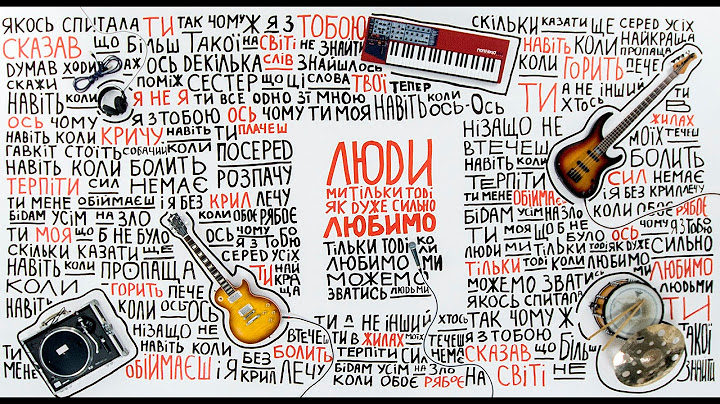 ЯКОСЬ СПИТАЛА ТИ ТАК ЧОМУ Ж Я З ТОБОЮ
СКАЗАВ ЩО БІЛЬШ ТАКОЇ НА СВІТІ НЕ ЗНАЙТИ
ДУМАВ ХОДИВ ОСЬ ДЕКІЛЬКА СЛІВ ЗНАЙШЛОСЬ
СКАЖИ ПОМІЖ СЕСТЕР ЩО ЦІ СЛОВА ТВОЇ ТЕПЕР
НАВІТЬ КОЛИ Я НЕ Я ТИ ВСЕ ОДНО ЗІ МНОЮ
ОСЬ ЧОМУ Я З ТОБОЮ ОСЬ ЧОМУ ТИ МОЯ НАВІТЬ КОЛИ ОСЬ-ОСЬ
НАВІТЬ КОЛИ КРИЧУ НАВІТЬ КОЛИ ТИ ПЛАЧЕШ
ГАВКІТ СТОЇТЬ СОБАЧИЙ КОЛИ ПОСЕРЕД
НАВІТЬ КОЛИ БОЛИТЬ РОЗПАЧУ
ТЕРПІТИ СИЛ НЕМАЄ
ТИ МЕНЕ ОБІЙМАЄШ І Я БЕЗ КРИЛ ЛЕЧУ
БІДАМ УСІМ НА ЗЛО КОЛИ ОБОЄ РЯБОЄ
ТИ МОЯ ЩО Б НЕ БУЛО ОСЬ ЧОМУ Я З ТОБОЮ
СКІЛЬКИ КАЗАТИ ЩЕ СЕРЕД УСІХ
НАВІТЬ КОЛИ ПРОПАЩА ТИ НАЙКРАЩА
КОЛИ ГОРИТЬ ПЕЧЕ
НАВІТЬ КОЛИ ОСЬ-ОСЬ
НІЗАЩО НЕ ВТЕЧЕШ
ТИ НАВІТЬ КОЛИ БОЛИТЬ
МЕНЕ ОБІЙМАЄШ І Я БЕЗ КРИЛ ЛЕЧУ
ЛЮДИ
МИ ТІЛЬКИ ТОДІ
ЯК ДУЖЕ СИЛЬНО
ЛЮБИМО
ТІЛЬКИ ТОДІ КОЛИ
ЛЮБИМО МИ
МОЖЕМО
ЗВАТИСЬ ЛЮДЬМИ
ТИ А НЕ ІНШИЙ ХТОСЬ
ТИ В ЖИЛАХ МОЇХ ТЕЧЕШ
ТЕРПІТИ СИЛ НЕМА
БІДАМ УСІМ НА ЗЛО
КОЛИ ОБОЄ РЯБОЄ
СКІЛЬКИ КАЗАТИ ЩЕ СЕРЕД УСІХ
НАВІТЬ КОЛИ НАЙКРАЩА ПРОПАЩА
КОЛИ ГОРИТЬ ПЕЧЕ
ТИ А НЕ ІНШИЙ ХТОСЬ
ТИ В ЖИЛАХ
НІЗАЩО НЕ МОЇХ ТЕЧЕШ
ВТЕЧЕШ
НАВІТЬ КОЛИ БОЛИТЬ
ТЕРПІТИ СИЛ НЕМАЄ
ТИ МЕНЕ ОБІЙМАЄШ І Я БЕЗ КРИЛ ЛЕЧУ
БІДАМ УСІМ НА ЗЛО КОЛИ ОБОЄ РЯБОЄ
ТИ МОЯ ЩО Б НЕ БУЛО ОСЬ ЧОМУ Я З ТОБОЮ
ЛЮДИ МИ ТІЛЬКИ ТОДІ ЯК ДУЖЕ СИЛЬНО
ТІЛЬКИ ТОДІ КОЛИ ЛЮБИМО ЛЮБИМО
МОЖЕМО ЗВАТИСЬ ЛЮДЬМИ
ЯКОСЬ СПИТАЛА ТИ
ТАК ЧОМУ Ж
Я З ТОБОЮ
СКАЗАВ ЩО БІЛЬШ ТАКОЇ
НА СВІТІ НЕ ЗНАЙТИ